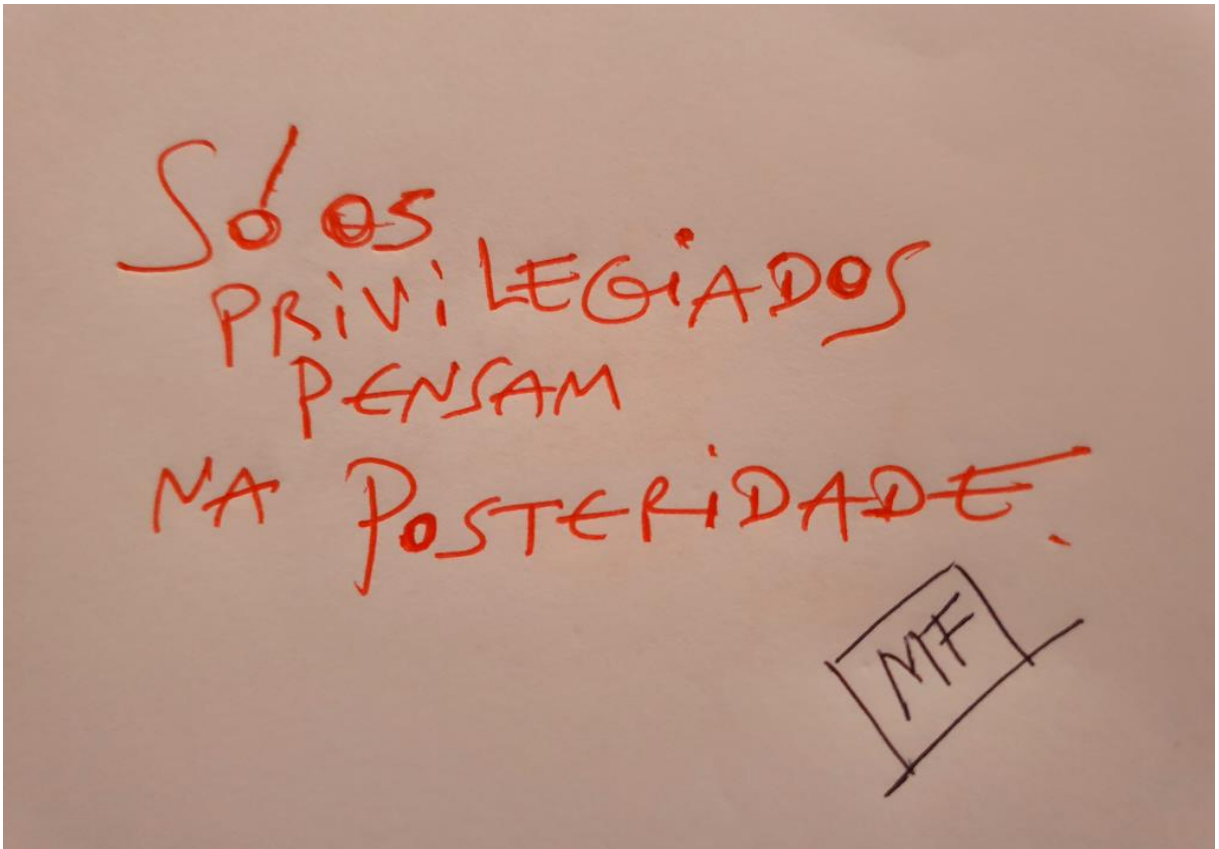 Só OS
PRiViLEGiADOS
PENSAM
NA POSTERiDADE.
MF